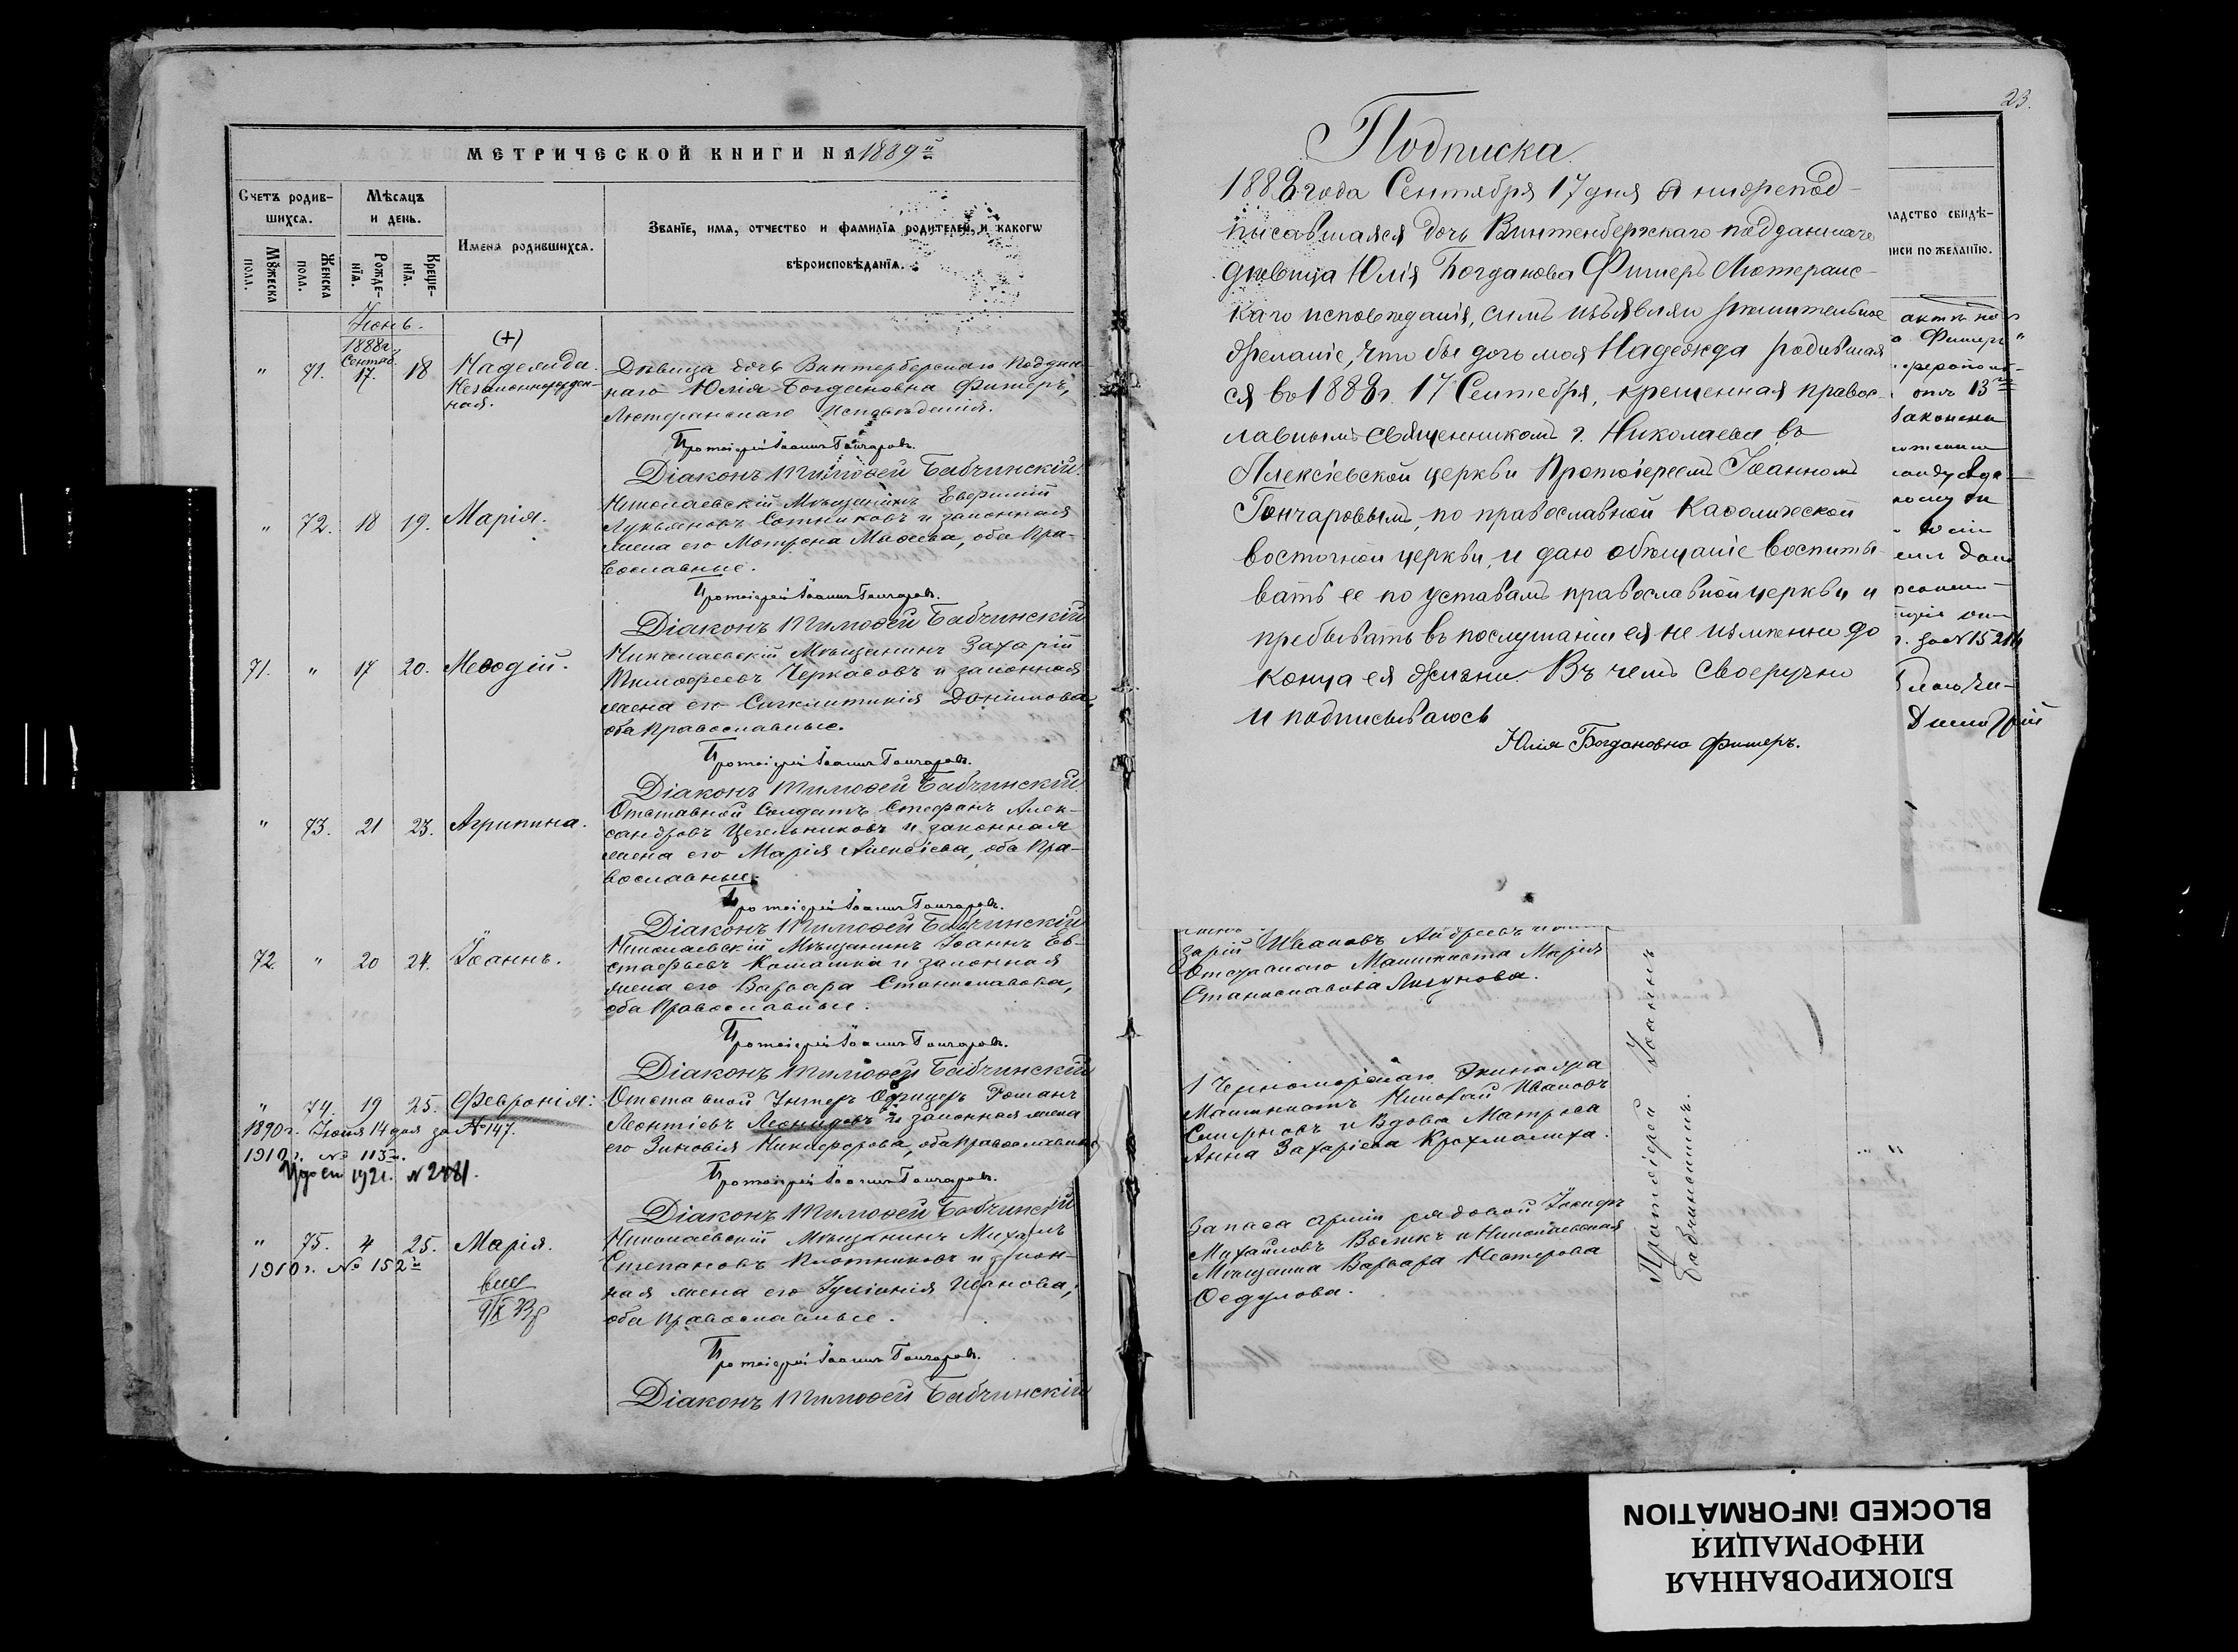 МЕТРИЧЕСКОЙ КНИГИ НА 1889й
Счетъ родив-
шихся.
Мѣсяцъ
и день.
Имена родившихся.
Званїе, имя, отчество и фамилїя родителей, и какогѡ
вѣроисповѣданїя.
Мꙋжеска
пола.
Женска
пола.
Рожде-
нїя.
Креще-
нїя.
Іюнь.
(+)
1888г.
Сентяб.
" 71. 17. 18 Надежда.
Незаконнорожден-
ная.
Дѣвица дочь Винтерберскаго поддан-
наго Юлія Богдановна Фишеръ,
Лютеранскаго исповѣданія.
Протоіерей Іоаннъ Гончаровъ.
Діаконъ Тимоѳей Бабчинскій
" 72. 18 19. Марія.
Николаевскій Мѣщанинъ Евфимій
Лукьяновъ Сотниковъ и законная
жена его Мотрона Моѵсеева, оба Пра-
вославные.
Протоіерей Іоаннъ Гончаровъ.
Діаконъ Тимоѳей Бабчинскій
71. " 17 20. Меѳодій.
Николаевскій Мѣщанинъ Захарій
Тимоѳеевъ Черкасовъ и законная
жена его Синклитикія
оба православные.
Протоіерей Іоаннъ Гончаровъ.
Діаконъ Тимоѳей Бабчинскій
" 73. 21 23. Агрипина.
Отставной Солдатъ Стефанъ Алек-
сандровъ Цегельниковъ и законная
жена его Марія Алексіева, оба Пра-
вославные.
Протоіерей Іоаннъ Гончаровъ.
Діаконъ Тимоѳей Бабчинскій
72. " 20 24. Іоаннъ.
Николаевскій Мѣщанинъ Іоаннъ Ев-
стафьевъ Комашка и законная
жена его Варвара Станиславова,
оба Православные.
Протоіерей Іоаннъ Гончаровъ.
Діаконъ Тимоѳей Бабчинскій
" 74. 19 25. Февронія.
1890г. Іюня 14 дня за №147.
1910г. № 113й.
1921. N 2881.
Отставной Унтеръ Офицеръ Романъ
Леонтіевъ Леонидовъ и законная жена
его Зиновія Никифорова, оба православные
Протоіерей Іоаннъ Гончаровъ.
Діаконъ Тимоѳей Бабчинскій
" 75. 4 25. Марія.
1910г. № 152й
Николаевскій Мѣщанинъ Михаилъ
Степановъ Плотниковъ и закон-
ная жена его Іуліанія Иванова,
оба православные.
Протоіерей Іоаннъ Гончаровъ.
Діаконъ Тимоѳей Бабчинскій
23.
Подписка
1888 года Сентября 17 дня я нижепод-
писавшаяся дочь Винтенбержскаго подданнаго
дѣвица Юлія Богданова Фишеръ Лютеранс-
каго исповѣданія, симъ изъявляю рѣшительное
желаніе, что бы дочь моя Надежда родившая
ся въ 1888г. 17 Сентебря, крещенная правос-
лавнымъ священникомъ г. Николаева въ
Алексіевской церкви Протоіереемъ Іоанномъ
Гончаровымъ, по православной Каѳолической
восточной церкви, и даю обѣщаніе воспиты-
вать ее по уставамъ православной церкви и
пребывать въ послушаніи ея не измѣнно до
конца ея жизни. Въ чемъ своеручно
и подписываюсь
Юлія Богдановна Фишеръ.
ладство свидѣ-
писи по желанїю.
актъ
Фишеръ
отъ 13го
законна
Зарій Ивановъ Андреевъ
Отставнаго Машиниста Марія
Станиславова
1 Черноморскаго Экипажа
Машинистъ Николай Ивановъ
Смирновъ и Вдова Матроса
Анна Захаріева Крахмалиха.
Запаса арміи рядовой Іосифъ
Михайловъ и Николаевская
Мѣщанка Варвара Нестерова
Ѳедулова.
Протоіерей Іоаннъ
Бабчинскимъ.
БЛОКИРОВАННАЯ
ИНФОРМАЦИЯ
BLOCKED INFORMATION